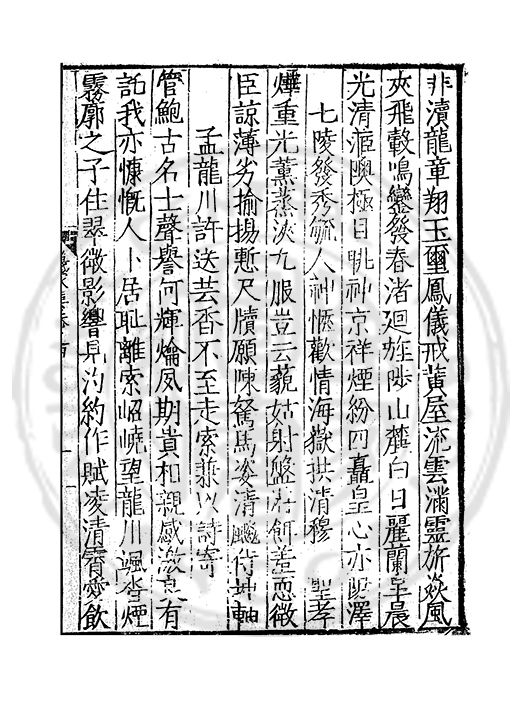 非瀆龍章翔玉璽鳳儀戒黃屋流雲滿靈旂焱風
夾飛轂鳴鑾發春渚迴旌陟山麓白日麗蘭皐晨
光清澱隩極目眺神京祥煙紛四矗皇心亦隆澤
七陵發秀毓人神愜歡情海嶽拱清穆 聖孝
燁重光薰蒸浹九服豈云藐姑射盤
臣諒薄劣揄揚慙尺牘願陳駑馬姿清飈待坤軸
孟龍川許送芸香不至走索兼以詩寄
管鮑古名士聲譽何輝爚夙期貴和親感激良有
託我亦慷慨人卜居耻離索岧嶢望龍川颯沓煙
霧廓之子住翠微影響見沕約作賦凌清霄愛飲